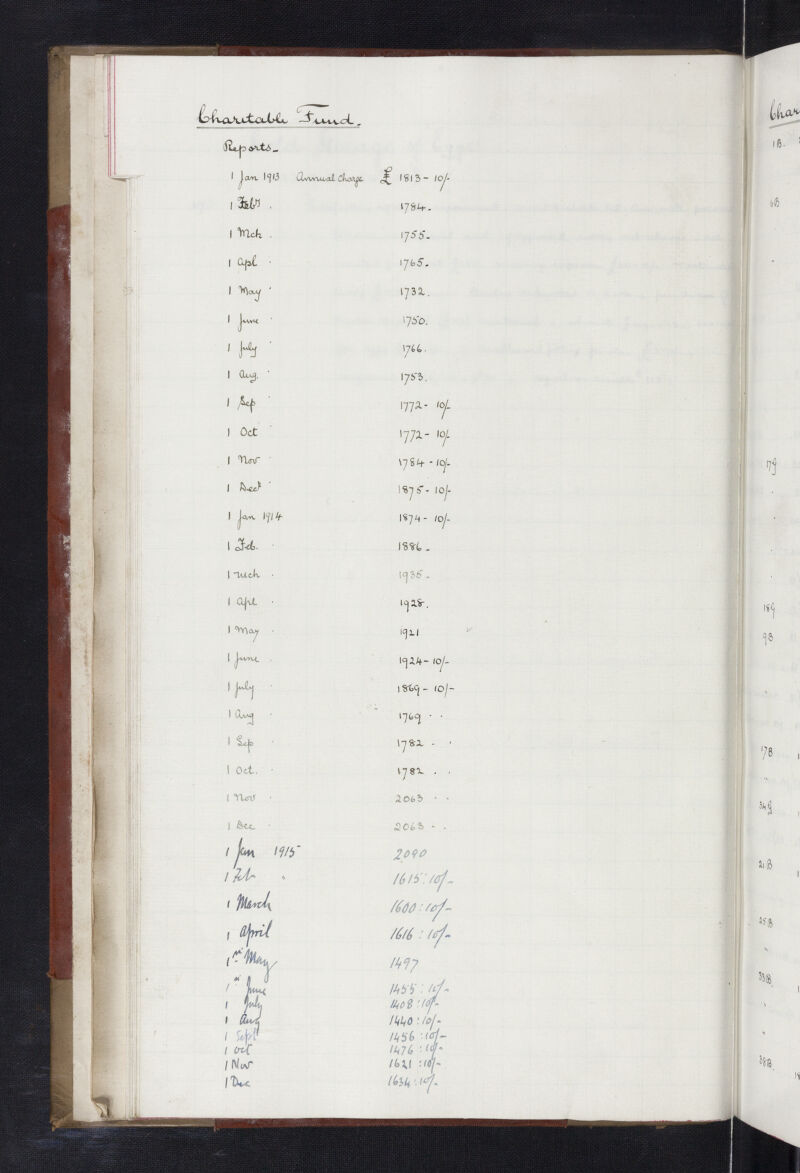 Charitable Fund.
Reports_
1 Jan 1913 Annual Charge £ 1813 - 10/-
1 Feby . 1784 -
1 Mch . 1755 -
1 Apl . 1765 -
1 May . 1732.
1 June . 1750.
1 July . 1766.
1 Aug. . 1753.
1 Sep . 1772 - 10/-
1 Oct . 1772 - 10/-
1 Nov . 1784 - 10/-
1 Decr . 1875 - 10/-
1 Jan 1914 1874 - 10/-
1 Feb. . 1886 -
1 Mch . 1935 -
1 Apl . 1928.
1 May . 1921
1 June . 1924 - 10/-
1 July . 1869 - 10/-
1 Aug . 1769 . .
1 Sep . 1782 - .
1 Oct. . 1782 . .
1 Nov . 2063 . .
1 Dec . 2063 - .
1 Jan 1915 2090
1 Feb " 1615 : 10/-
1 March 1600 : 10/-
1 April 1616 : 10/-
1st May 1497
1st June 1455 : 10/-
1 July 1408 : 10/-
1 Aug 1440 : 10/-
1 Sept 1456 : 10/-
1 Oct 1476 : 10/-
1 Nov 1621 : 10/-
1 Dec 1634 : 10/-
Char
1B.
6B
179
189
9B
17B
349
21B
25B
33B.
38B.